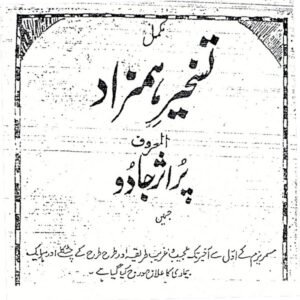 مکمل
تسخیر ہمزاد
المعروف
پُر اثر جادو
جمیں
مسمریزم کے اول سے آخر تک عجیب و غریب طریقہ اور طرح طرح کے چٹکلے اور ہر ایک
بیماری کا علاج درج کیا گیا ہے۔